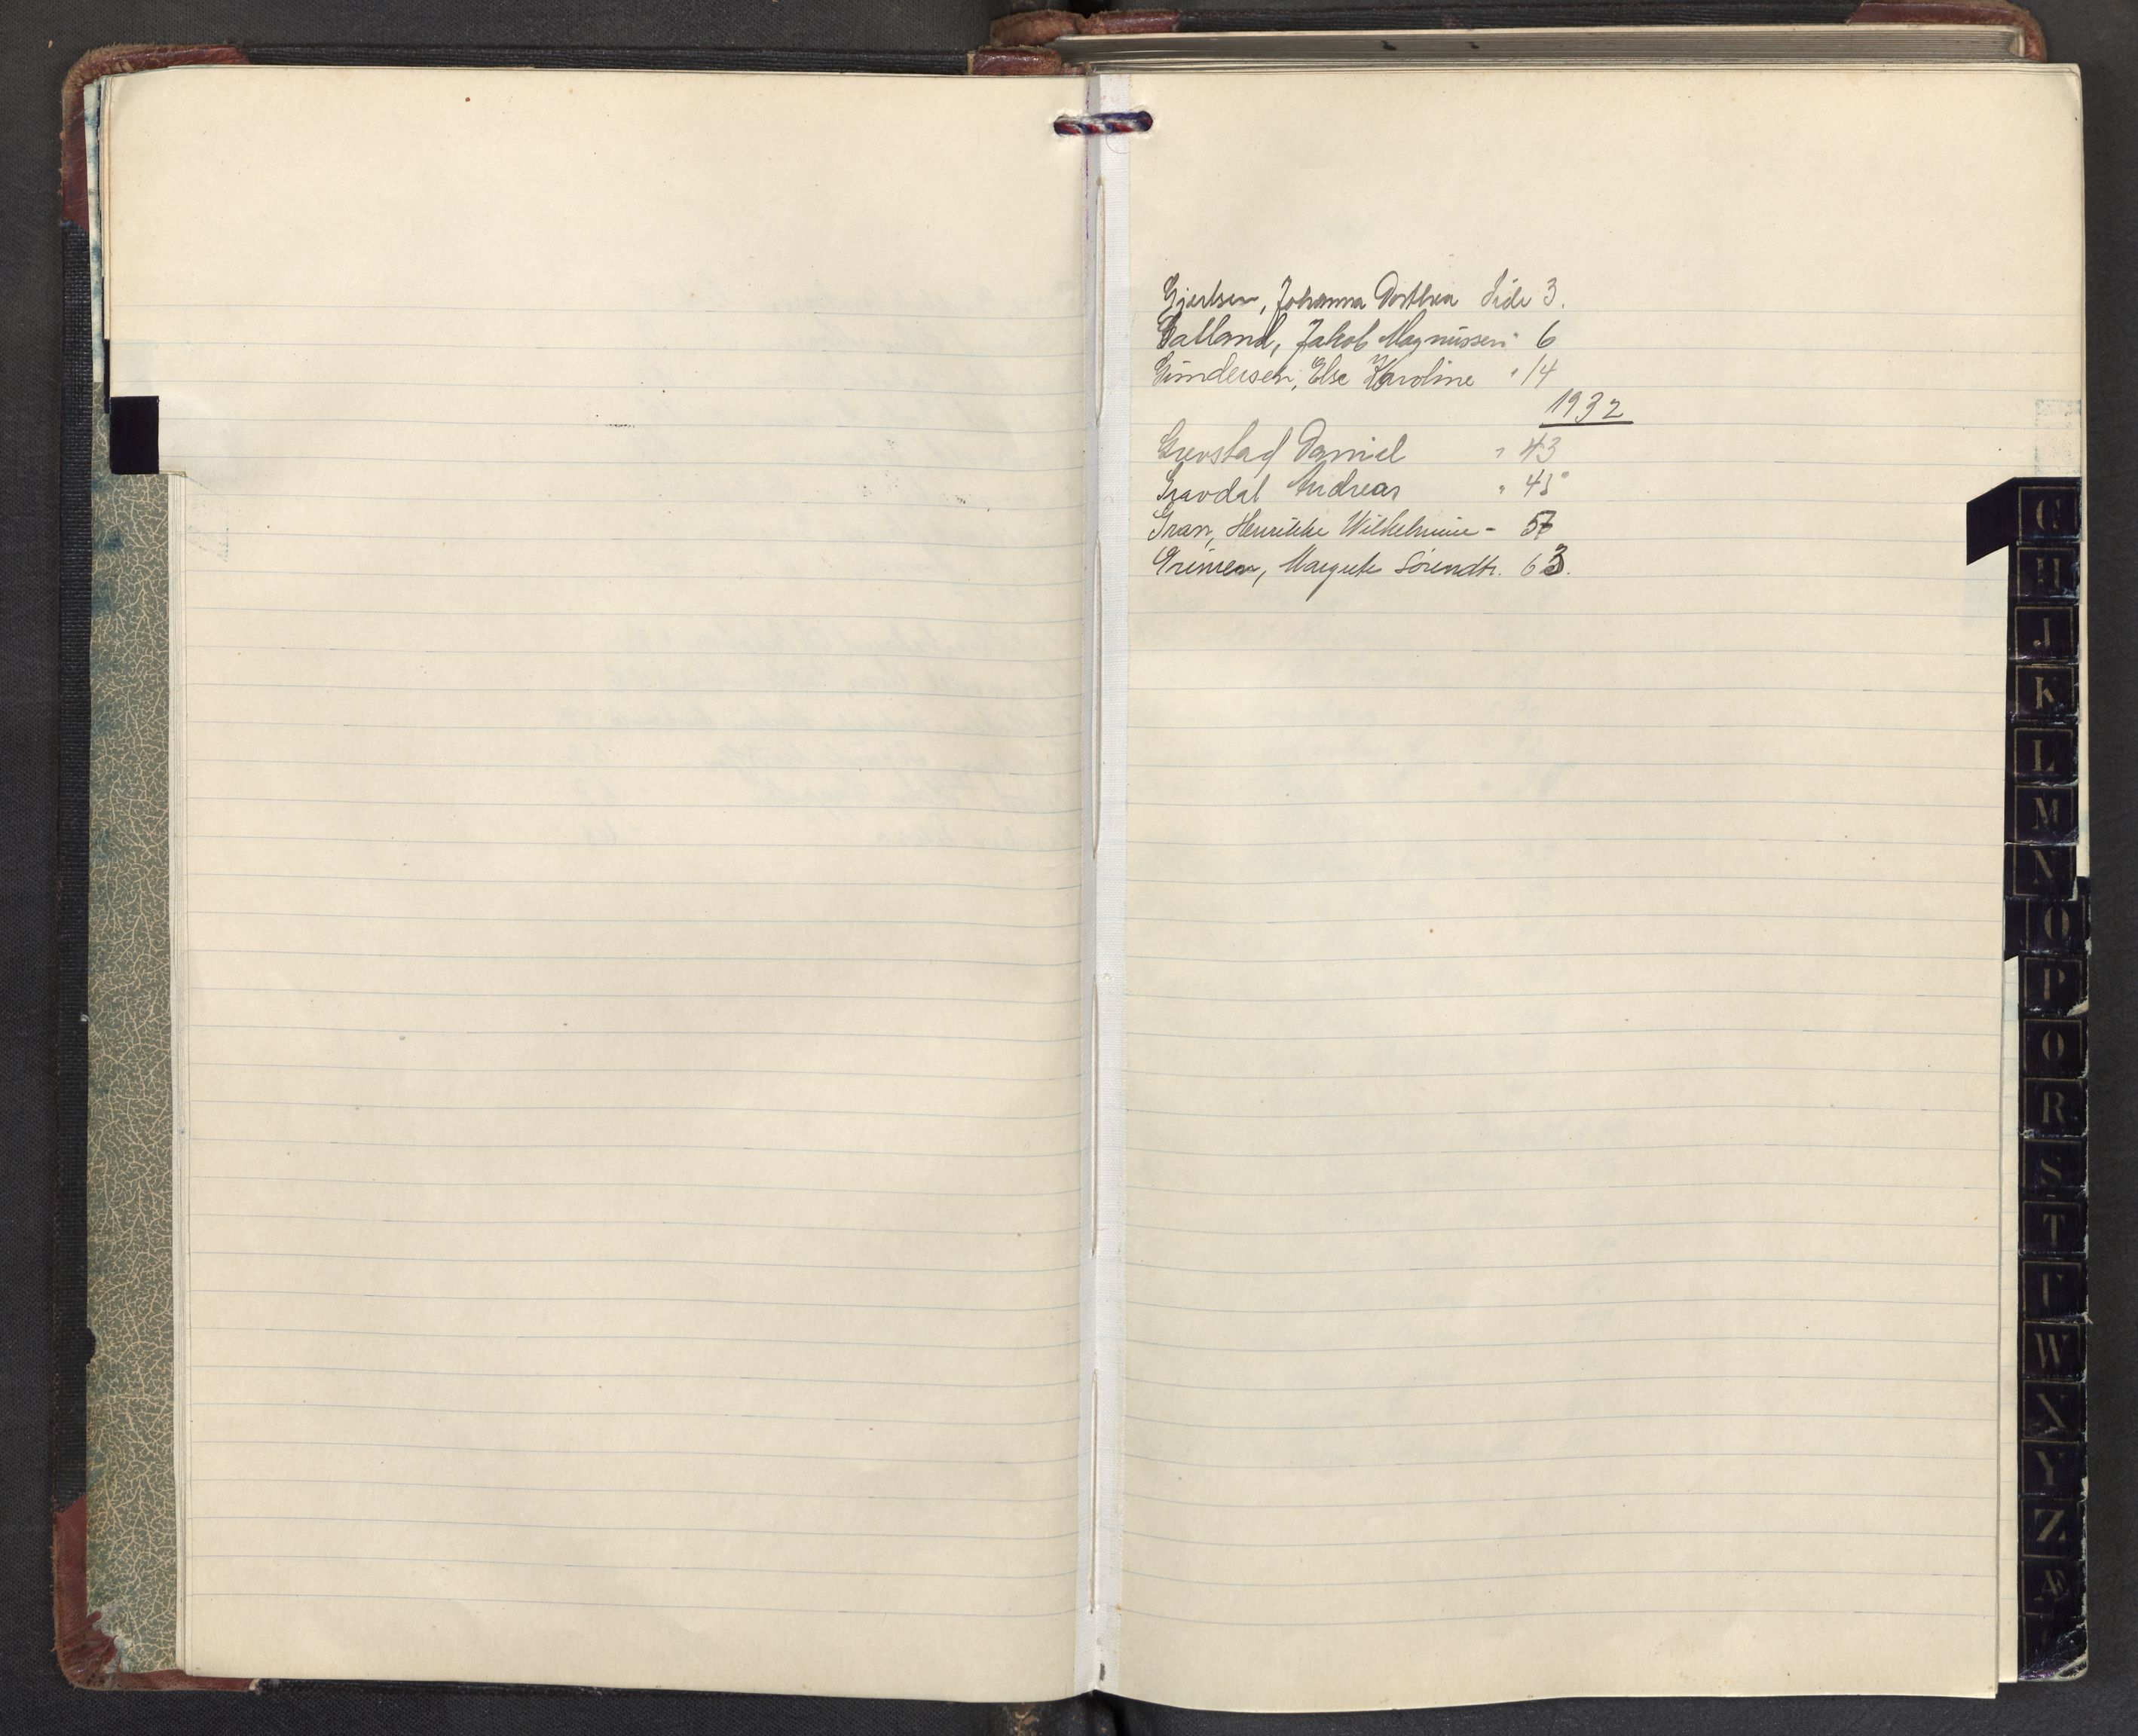 Gjertsen, Johanna Dorthea Side 3.
Gatland, Jakob Magnussen " 6
Gundersen, Else Karoline " 14
1932
Grevstad Daniel " 43
Gravdal Andreas " 45
Gran, Henrikke Wilhelmine - 57
Grimen, Margrete Sörendtr. 63.
G
H
J
K
L
M
N
O
P
Q
R
S
T
U
W
X
Y
Z
Æ